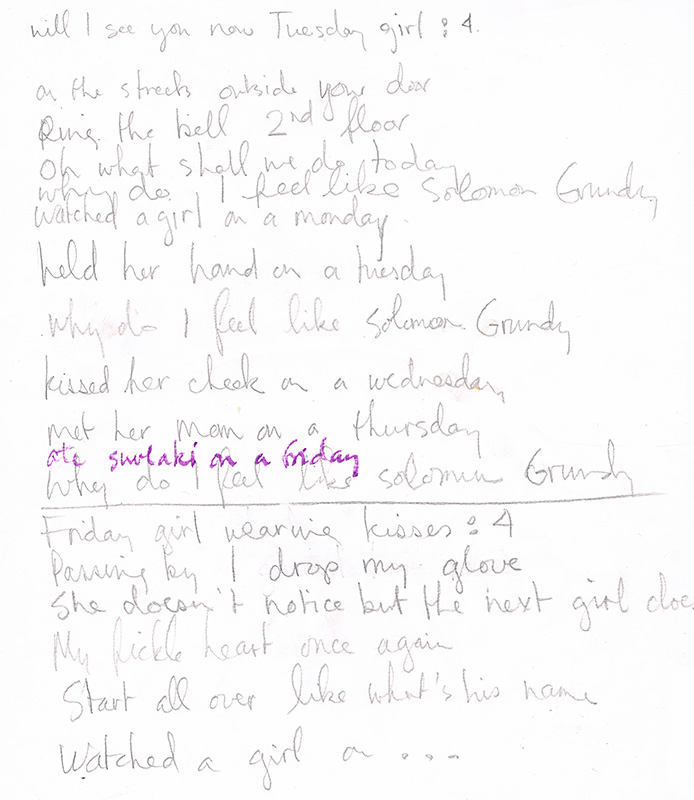 will I see you now Tuesday girl : 4.
on the streets outside your door
Ring the bell 2nd floor
oh what shall we do today
why do I feel like Solomon Grundy
watched a girl on a monday.
held her hand on a tuesday
why do I feel like Solomon Grundy
kissed her cheek on a wednesday
met her mom on a thursday
ate suvlaki on a friday
why do I feel like solomon Grundy
Friday girl wearing kisses : 4
Passing by I drop my glove
She doesn't notice but the next girl does
My fickle heart once again
Start all over like what's his name
Watched a girl on ....